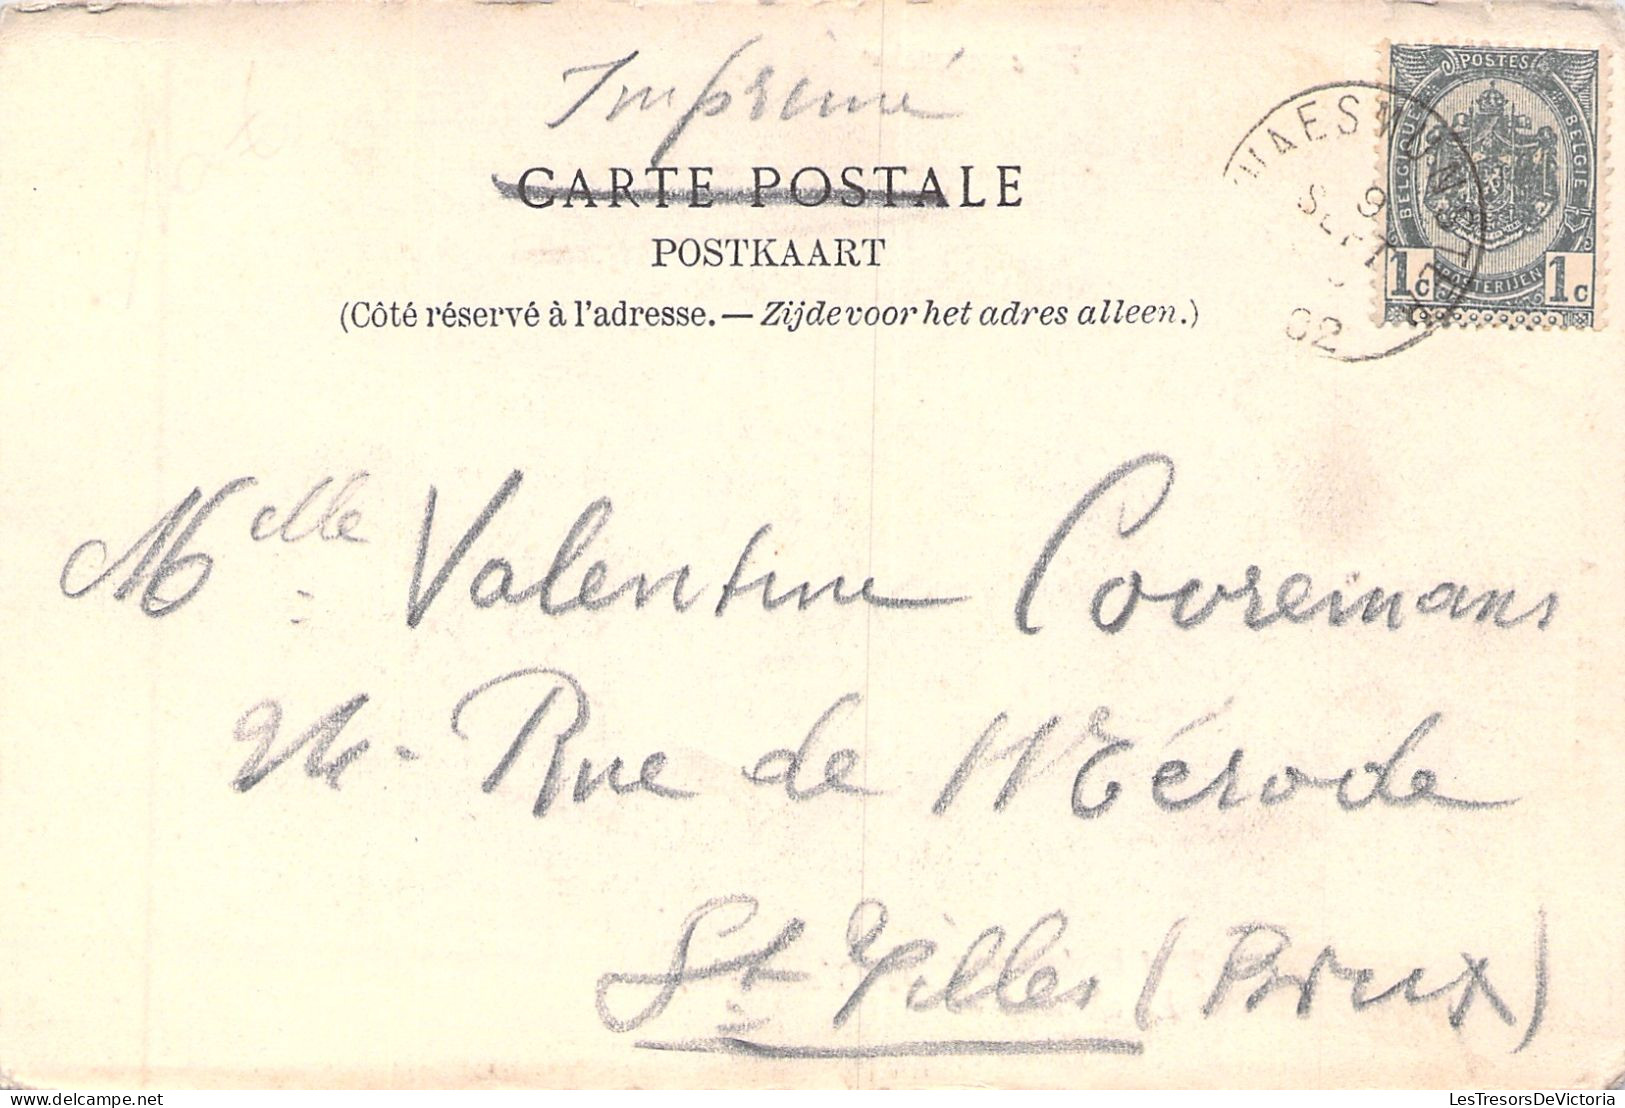 Imprimé
CARTE POSTALE
POSTKAART
(Côté réservé à l'adresse. — Zijde voor het adres alleen.)
POSTES
BELGIQUE BELGIË
POSTERIJEN
1c 1c
9
SEPT
02
Mlle Valentine Cooremans
24 - Rue de Mérode
St Gilles (Brux)
delcampe.net
LesTresorsDeVictoria